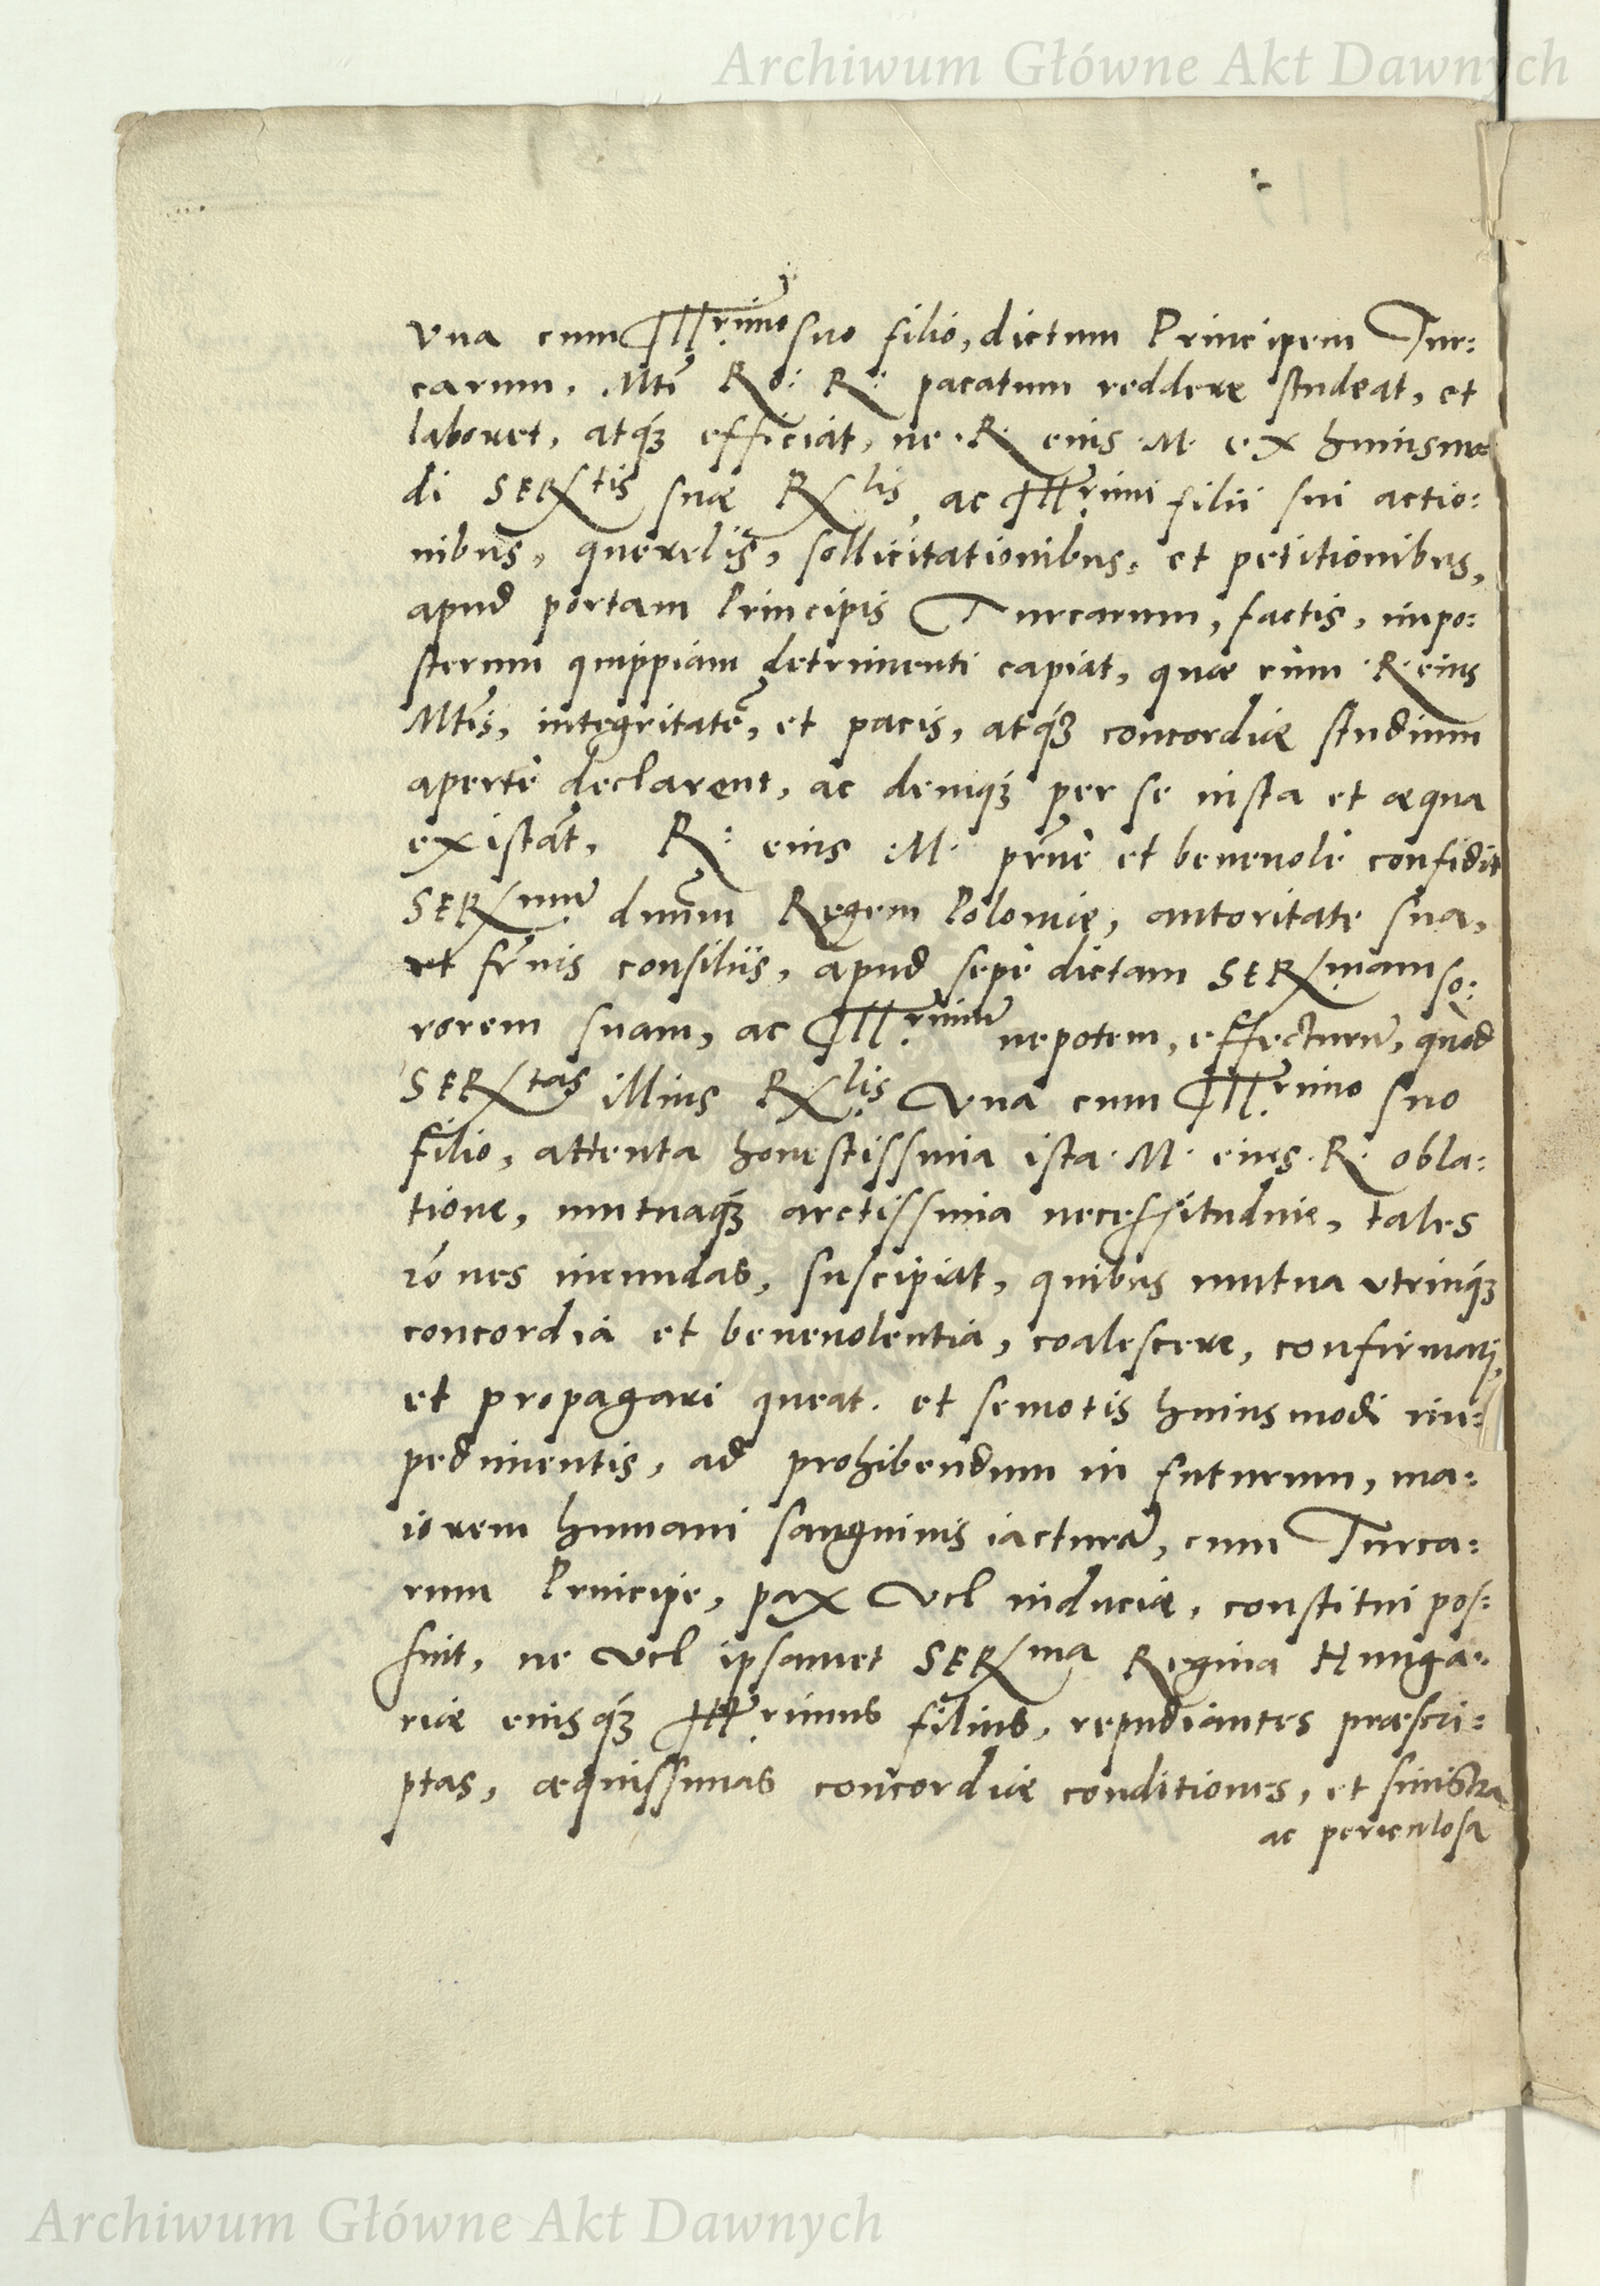 Archiwum Główne Akt Dawnych
Vna cum Ill.rimo suo filio, dictum Principem Tur:
carum, Mti Ro: R: pacatum reddere studeat, et
laboret, atq́; efficiat, ne .R. eius .M. ex huiusmo
di SERtis suæ Rlis, ac Ill.rimi filii sui actio:
nibus, querelis, sollicitationibus, et petitionibus,
apud portam Principis Turcarum, factis, impo:
sterum quippiam detrimenti capiat, quæ cum .R. eius
Mtis, integritatẽ, et pacis, atq́; concordiæ studium
apertè declarent, ac deniq́; per se iusta et æqua
existãt, R: eius .M. prñè et beneuolè confidit
SERmum dnum Regem Poloniæ, autoritate sua,
et frñis consiliis, apud sepè dictam SERmam so:
rorem suam, ac Ill.rimum nepotem, effecturum, quòd
SERtas illius Rlis Vna cum Ill.rimo suo
filio, attenta honestissima ista .M. eius .R. obla:
tione, mutuaq́; arctissima necessitudine, tales
rõnes ineundas, suscipiat, quibus mutua vtrinq́;
concordia et beneuolentia, coalescere, confirmari,
et propagari queat. et semotis huiusmodi im:
pedimentis, ad prohibendum in futurum, ma:
iorem humani sanguinis iacturam, cum Turca:
rum Principe, pax Vel induciæ, constitui pos:
sint, ne Vel ipsamet SERma Regina Hunga:
riæ eiusq́; Ill.rimus filius, repudiantes præscri:
ptas, æquissimas concordiæ conditiones, et sinistra
ac periculosa
Archiwum Główne Akt Dawnych